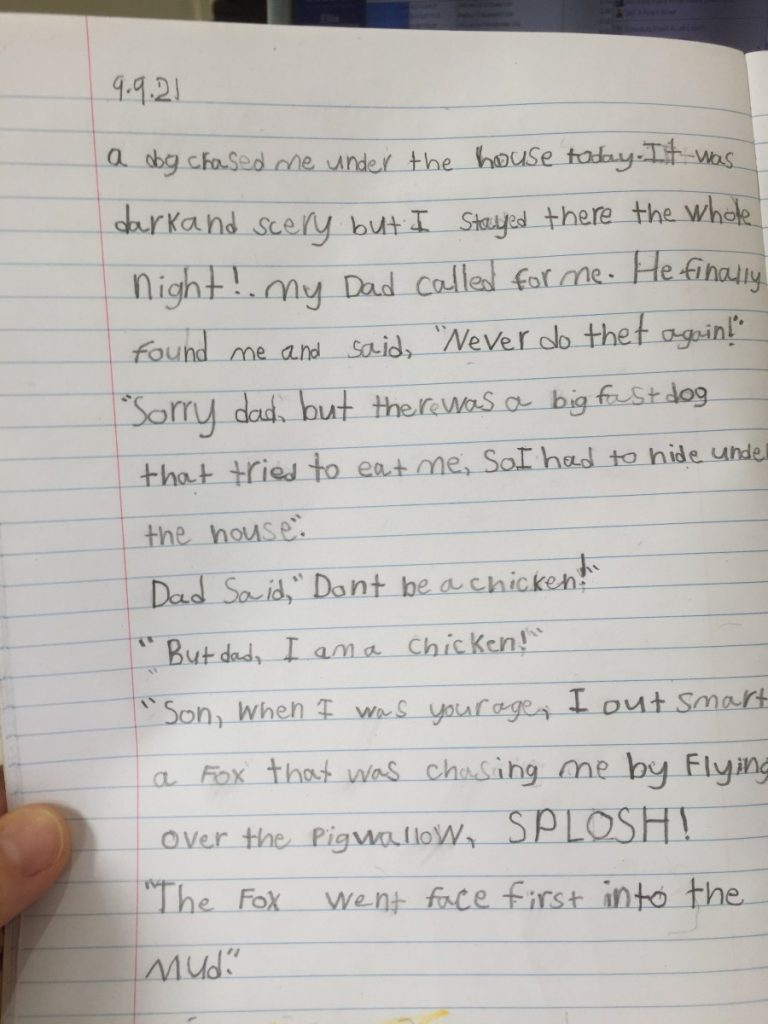 9.9.21
a dog chased me under the house today. It was
dark and scery but I stayed there the whole
night!. my Dad called for me. He finally
found me and said, "Never do thet again!"
"Sorry dad, but there was a big fast dog
that tried to eat me, So I had to hide under
the house".
Dad Said, "Dont be a chicken!"
"But dad, I am a chicken!"
"Son, when I was your age, I out smart
a Fox that was chasing me by Flying
over the Pigwallow, SPLOSH!
"The Fox went face first into the
Mud."